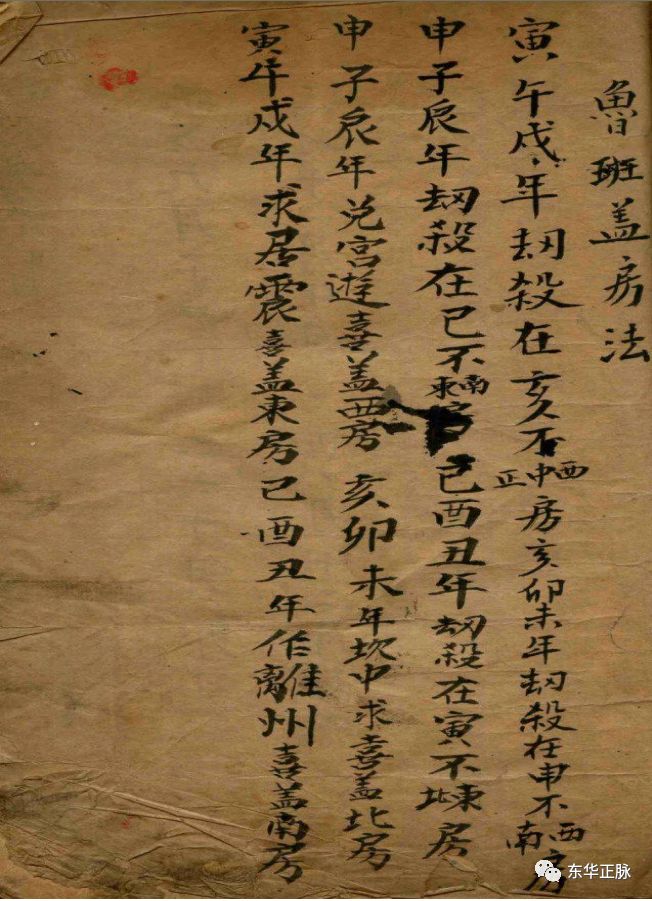 魯班盖房法
寅午戍年劫殺在亥不正中西房亥卯未年劫殺在申不南西房
申子辰年劫殺在巳不東南房已酉丑年劫殺在寅不北東房
申子辰年兑宫遊喜盖西房亥卯未年坎中求喜盖北房
寅午戍年求居震喜盖東房已酉丑年作離州喜盖南房
东华正脉